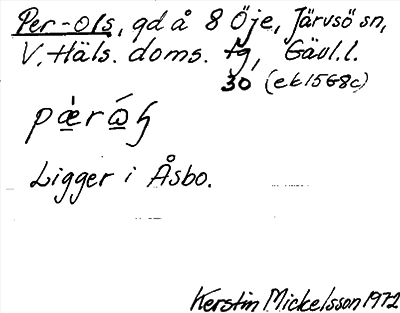 Per-Ols, gd å 8 Öje, Järvsö sn,
V. Häls. doms. fg, Gävl.l.
30 (ek 15G8c)
Ligger i Åsbo.
Kerstin Mickelsson 1972